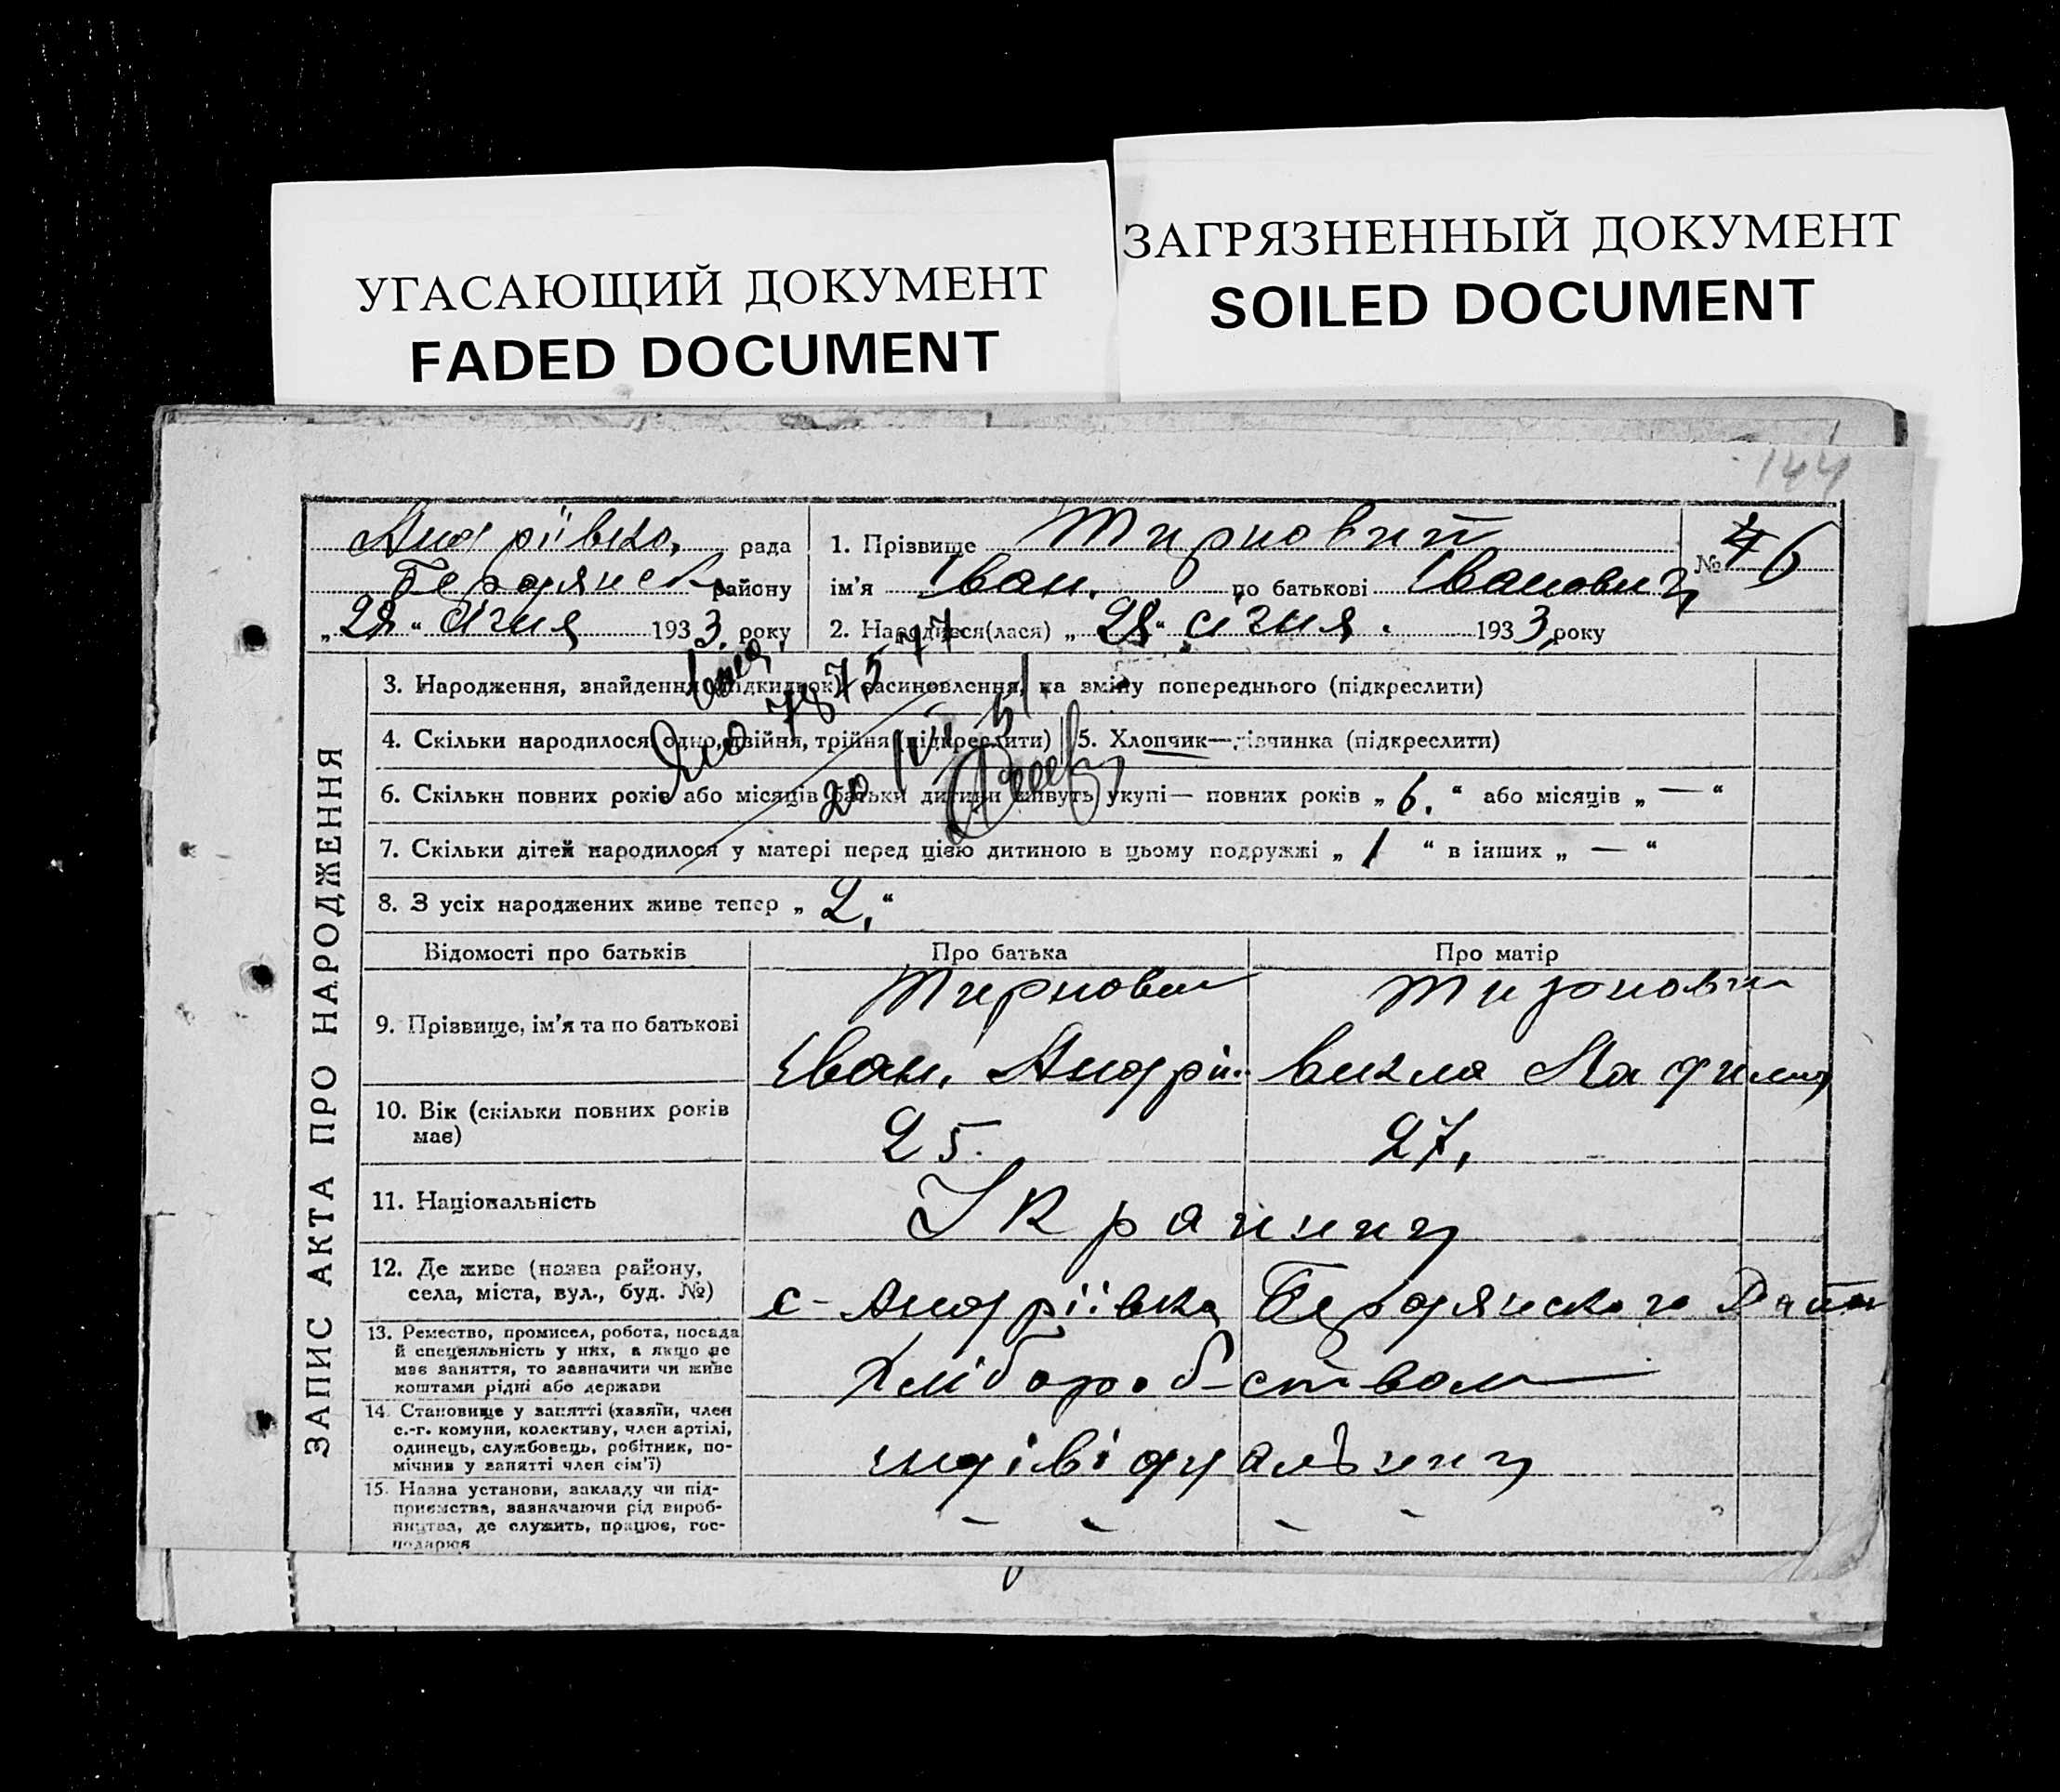 УГАСАЮЩИЙ ДОКУМЕНТ
FADED DOCUMENT
ЗАГРЯЗНЕННЫЙ ДОКУМЕНТ
SOILED DOCUMENT
144
ЗАПИС АКТА ПРО НАРОДЖЕННЯ
Андріївка, рада
Бердянськ району
„28“ січня 1933. року
1. Прізвище Тирновий
ім'я Іван. по батькові Іванович
2. Народився(лася) „28“ січня. 1933 року
№ 6
3. Народження, знайдення (підкидьок), засиновлення, на зміну попереднього (підкреслити)
4. Скільки народилося одно, двійня, трійня (підкреслити) 5. Хлопчик—дівчинка (підкреслити)
6. Скільки повних років або місяців батьки дитини живуть укупі— повних років „6.“ або місяців „—“
7. Скільки дітей народилося у матері перед цією дитиною в цьому подружжі „1“ в інших „—“
8. З усіх народжених живе тепер „2.“
20/VII 51
Відомості про батьків Про батька Про матір
9. Прізвище, ім'я та по батькові
Тирнови Тирнови
Іван. Андрій. Векла
10. Вік (скільки повних років має)
25. 27,
11. Національність
Українц
12. Де живе (назва району, села, міста, вул., буд. №)
с- Андріївка Бердянского Район
13. Ремество, промисел, робота, посада
й спецеяльність у них, а якщо не
має заняття, то зазначити чи живе
коштами рідні або держави
Хлібороб-ством
14. Становище у занятті (хазяїн, член
с.-г. комуни, колективу, член артілі,
одинець, службовець, робітник, по-
мічник у занятті член сім'ї)
індівідуальниц
15. Назва установи, закладу чи під-
приємства, зазначаючи рід вироб-
ництва, де служить, працює, гос-
подарює
- - - -